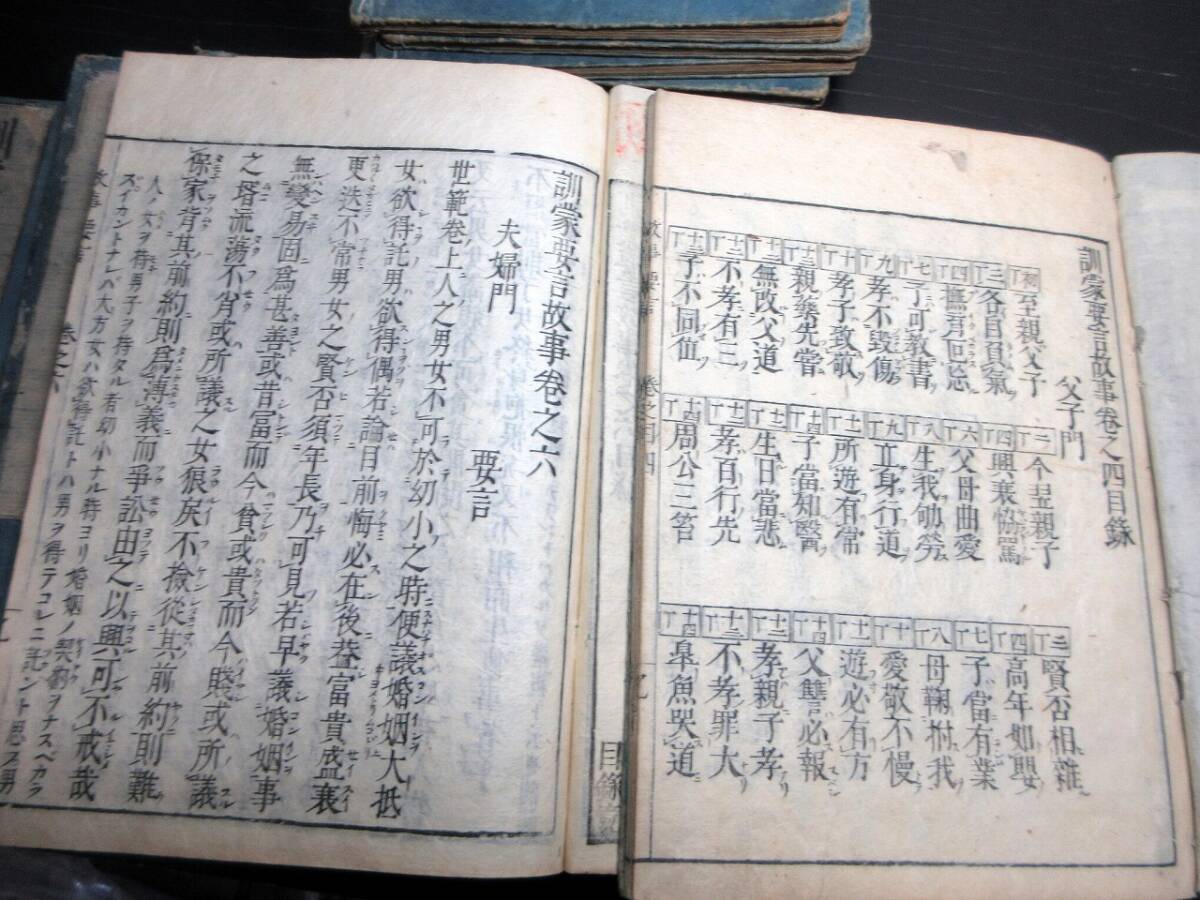 訓蒙要言故事卷之四目錄
父子門
初丁 至親父子 二丁 今翌親子 二丁 賢否相雜
三丁 各自負氣 四丁 興衰怡罵 四丁 高年如嬰
四丁 撫育囘忌 六丁 父母曲愛 七丁 子當有業
七丁 子可教書 八丁 生我劬勞 八丁 母鞠拊我
九丁 孝不毀傷 九丁 立身行道 十丁 愛敬不慢
十丁 孝子致敬 十丁 所遊有常 十一丁 遊必有方
十三丁 親藥先嘗 十四丁 子當知醫 十四丁 父讐必報
無改父道 生日當悲 孝親子孝
十三丁 不孝有三 孝百行先 十三丁 不孝罪大
十三丁 子不同値 十四丁 周公三笞 十四丁 皐魚哭道
訓蒙要言故事卷之六
夫婦門 要言
世範卷上人之男女不可於幼小之時便議婚姻大抵
女欲得託男欲得偶若論目前悔必在後蓋富貴盛衰
更迭不常男女之賢否須年長乃可見若早議婚姻事
無變易固爲甚善或昔富而今貧或貴而今賤或所議
之壻流蕩不肖或所議之女狠戾不檢從其前約則難
保家背其前約則爲薄義而爭訟由之以興可不戒哉
人ノ女ヲ持男子ヲ持タル者幼小ナル時ヨリ婚姻ノ契約ヲナスベカラ
ズイカントナレバ大方女ハ欲得託トハ男ヲ得テコレニ託ント思フ男